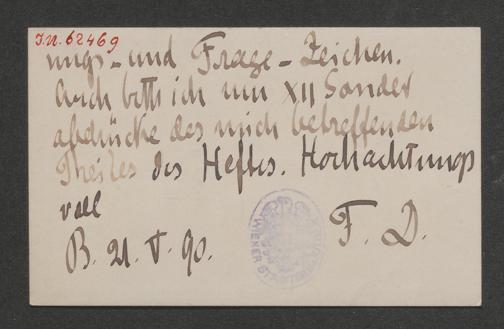 J.N. 62469
nungs- und Frage-Zeichen.
Auch bitte ich um XII Sonder
abdrücke des mich betreffenden
Theiles des Heftes. Hochachtungs
voll
B. 21. V. 90. F. D.
WIENER STADT